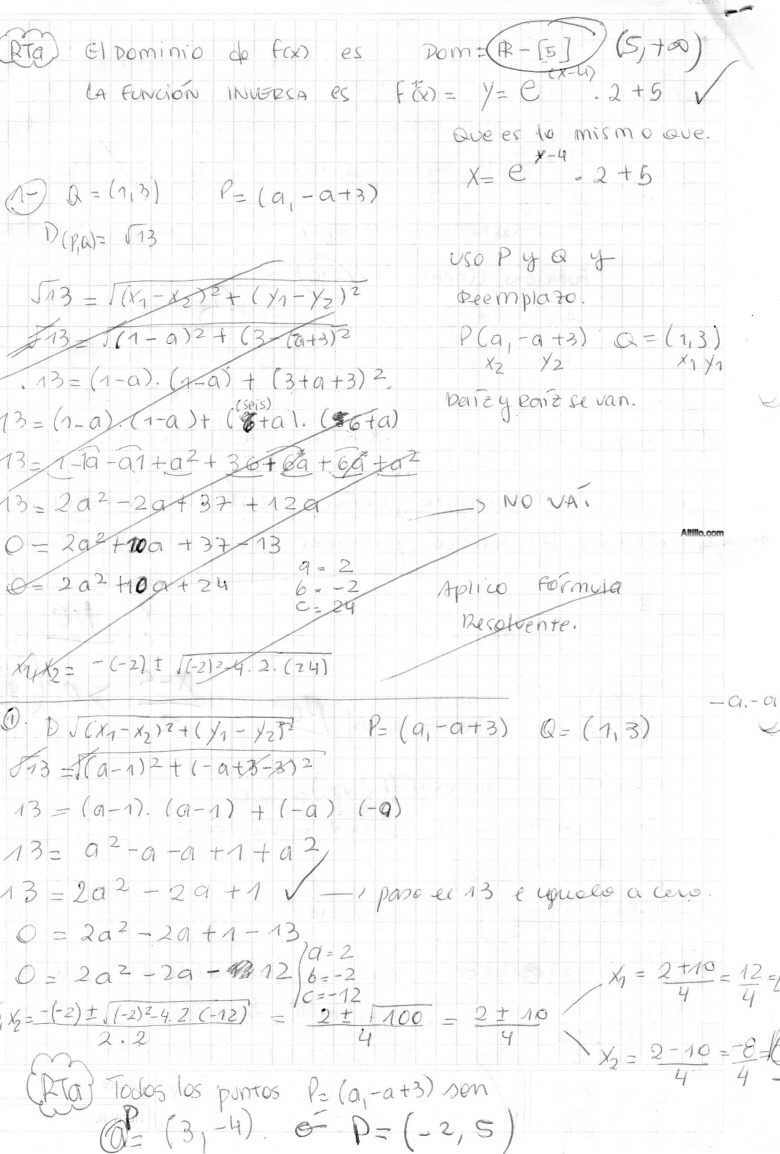 RTa El Dominio de f(x) es Dom = ℝ - [5] (5, +∞)
LA FUNCIÓN INVERSA es f⁻¹(x) = y = e^(x-4) . 2 + 5 ✓
que es lo mismo que.
x = e^y-4 . 2 + 5
1- Q = (1,3) P = (a, -a+3)
D(P,Q) = √13
uso P y Q y
Reemplazo.
√13 = √(x₁ - x₂)² + (y₁ - y₂)²
√13 = √(1-a)² + (3-(a+3)²
P(a, -a+3) Q = (1,3)
x₂ y₂ x₁ y₁
13 = (1-a) . (1-a) + (3+a+3)².
Raíz y Raíz se van.
(seis)
13 = (1-a) . (1-a) + (6+a) . (6+a)
13 = 1-1a-a1+a² + 36+6a+6a+a²
13 = 2a² - 2a + 37 + 12a → NO VA.
0 = 2a² + 10a + 37 - 13
Altillo.com
0 = 2a² + 10a + 24
a = 2
b = -2
c = 24
Aplico Fórmula
Resolvente.
x₁,x₂ = -(-2) ± √(-2)² - 4 . 2 . (24)
-a.-a
1. D √(x₁ - x₂)² + (y₁ - y₂)² P = (a, -a+3) Q = (1,3)
√13 = √(a-1)² + (-a+3-3)²
13 = (a-1) . (a-1) + (-a) (-a)
13 = a² - a - a + 1 + a²
13 = 2a² - 2a + 1 ✓ → paso el 13 e igualo a cero.
0 = 2a² - 2a + 1 - 13
0 = 2a² - 2a - 12
a = 2
b = -2
c = -12
x₂ = -(-2) ± √(-2)² - 4 . 2 (-12) / 2 . 2 = 2 ± √100 / 4 = 2 ± 10 / 4
x₁ = 2+10 / 4 = 12 / 4 =
x₂ = 2-10 / 4 = -8 / 4 =
RTa Todos los puntos P = (a, -a+3) son
P = (3, -4). o P = (-2, 5)